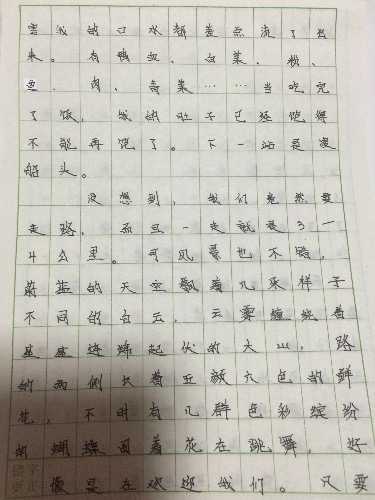 害我的口水都差点流了出
来。有鸭奴、白菜、桃、
鱼、肉、青菜……当吃完
了饭，我的肚子已经饱得
不能再饱了。下一站是渡
船头。
没想到，我们竟然要
走路，而且一走就是3一
4公里。可风景也不错，
蔚蓝的天空飘着几朵样子
不同的白云，云雾缠绕着
座座连绵起伏的大山，路
的两侧长着五颜六色的鲜
花，不时有几群色彩缤纷
蝴蝶围着花在跳舞，好
像是在欢迎我们。只要